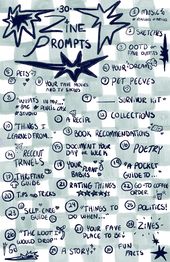 30
ZINE
PROMPTS
① MUSIC
② SKETCHES
③ OOTD or
FINE OUTFITS
④ YOUR DREAMS
⑤ PETS
⑥ YOUR FAVE MOVIES
AND TV SHOWS
⑦ PET PEEVES
⑧ "WHATS IN MY..."
BAG
PENCIL CASE
STUDIO
⑨ SURVIVOR KIT
⑩ A RECIPE
⑫ COLLECTIONS
⑪ THINGS I
LEARNED FROM...
⑬ BOOK RECOMMENDATIONS
⑭ RECENT
TRAVELS
⑮ DOCUMENT YOUR
DAY OR WEEK
⑯ POETRY
⑰ THRIFTING
GUIDE
⑱ YOUR
PLANT
BABIES
⑲ A POCKET
GUIDE TO...
⑳ TIPS AND TRICKS
㉑ RATING THINGS
㉒ GO-TO COFFEE
ORDER
㉓ SELF-CARE
GUIDE
㉔ THINGS TO
DO WHEN...
㉕ POLITICS!
㉖ "THE LOOT I
WOULD DROP"
㉗ YOUR FAVE
PLACE TO BE
㉘ ZINES
㉙ A STORY
㉚ FUN
FACTS
GO